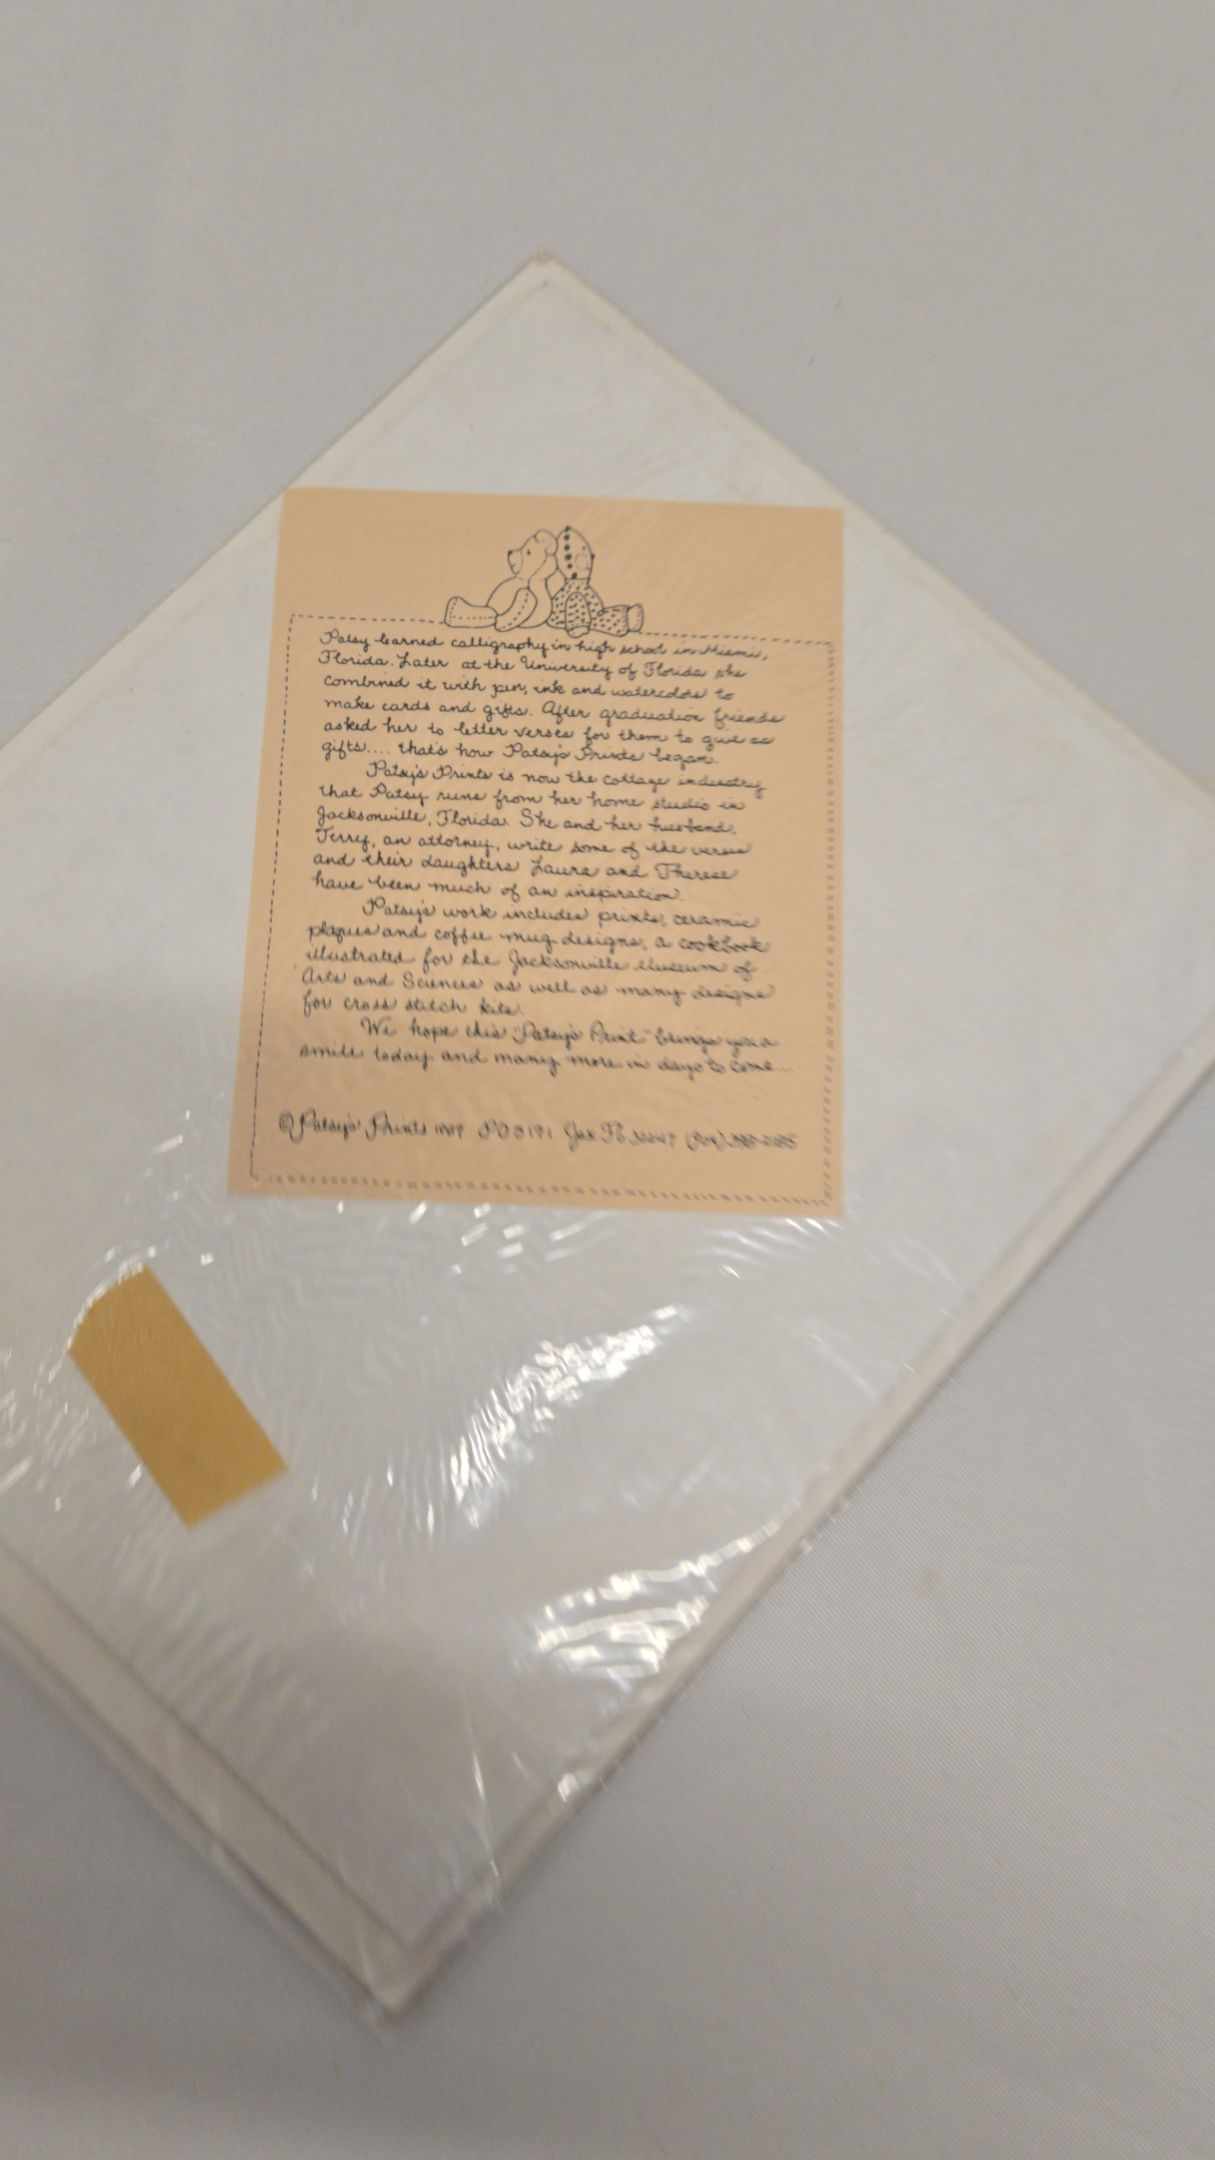 Patsy learned calligraphy in high school in Miami,
Florida. Later at the University of Florida she
combined it with pen, ink and watercolors to
make cards and gifts. After graduation friends
asked her to letter verses for them to give as
gifts.... that's how Patsy's Prints began.
Patsy's Prints is now the cottage industry
that Patsy runs from her home studio in
Jacksonville, Florida. She and her husband,
Terry, an attorney, write some of the verses
and their daughters Laura and Therese
have been much of an inspiration.
Patsy's work includes prints, ceramic
plaques and coffee mug designs, a cookbook
illustrated for the Jacksonville Museum of
Arts and Sciences as well as many designs
for cross stitch kits.
We hope this "Patsy's Print" brings you a
smile today and many more in days to come...
© Patsy's Prints Jax Fl